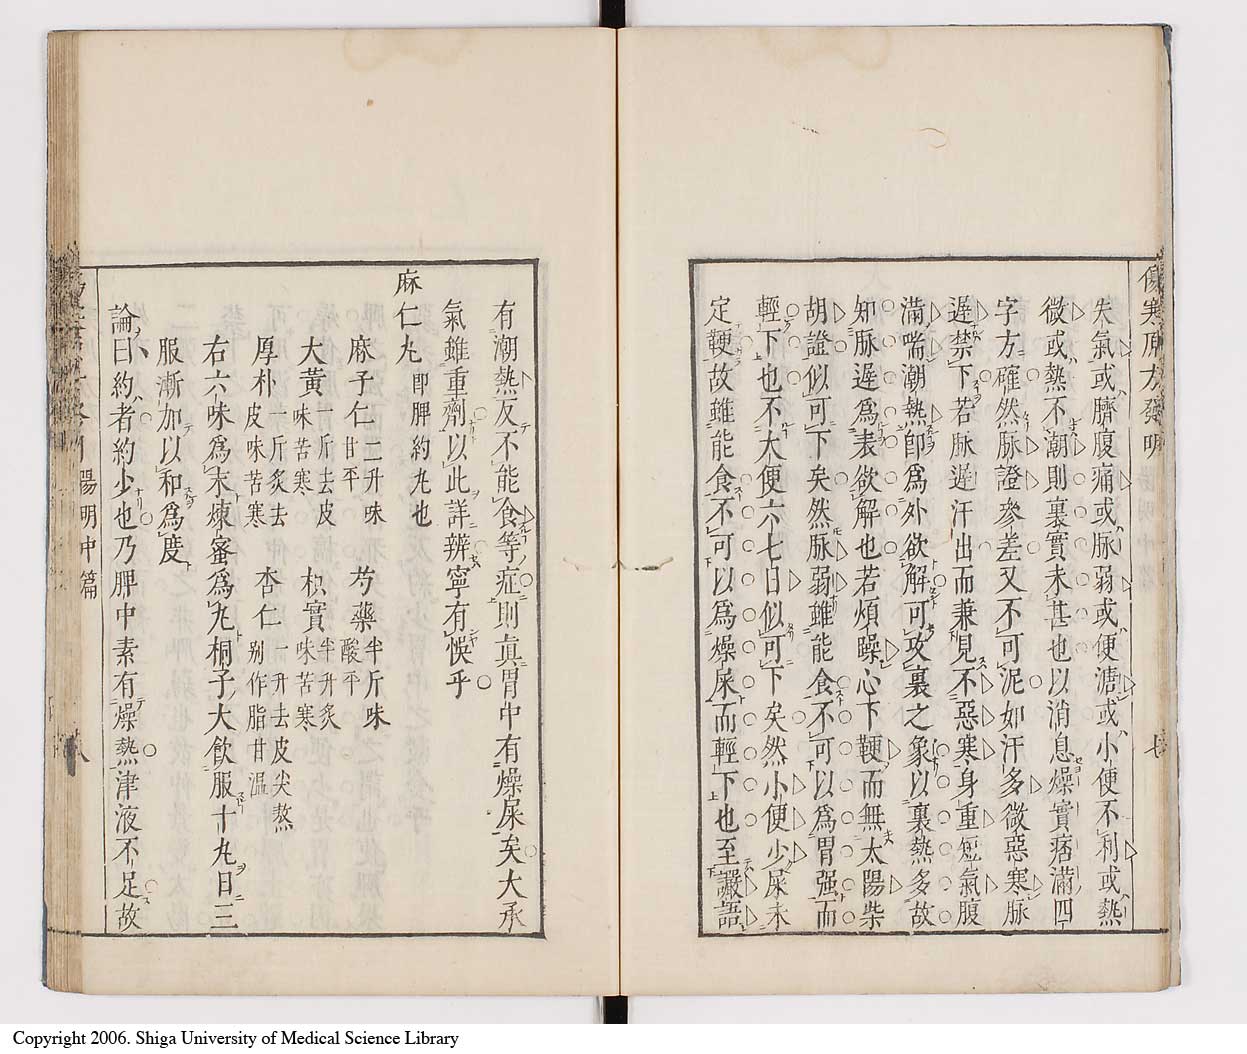 傷寒原方發明
失氣或臍腹痛或脉弱或便溏或小便不利或熱
微或熱不潮則裏實未甚也以消息燥實痞滿四
字方確然脉證參差又不可泥如汗多微惡寒脉
遲禁下若脉遲汗出而兼見不惡寒身重短氣腹
滿喘潮熱卽爲外欲解可攻裏之象以裏熱多故
知脉遲爲表欲解也若煩躁心下鞕而無太陽柴
胡證似可下矣然脉弱雖能食不可以爲胃强而
輕下也不大便六七日似可下矣然小便少屎未
定鞕故雖能食不可以爲燥屎而輕下也至譫語
有潮熱反不能食等症則眞胃中有燥屎矣大承
氣雖重劑以此詳辨寧有悞乎
麻仁丸 卽脾約丸也
麻子仁 二升味甘平 芍藥 半斤味酸平
大黃 一斤去皮味苦寒 枳實 半升炙味苦寒
厚朴 一斤炙去皮味苦寒 杏仁 一升去皮尖熬别作脂甘溫
右六味爲末煉蜜爲丸桐子大飲服十丸日三
服漸加以和爲度
論曰約者約少也乃脾中素有燥熱津液不足故
陽明中篇
八